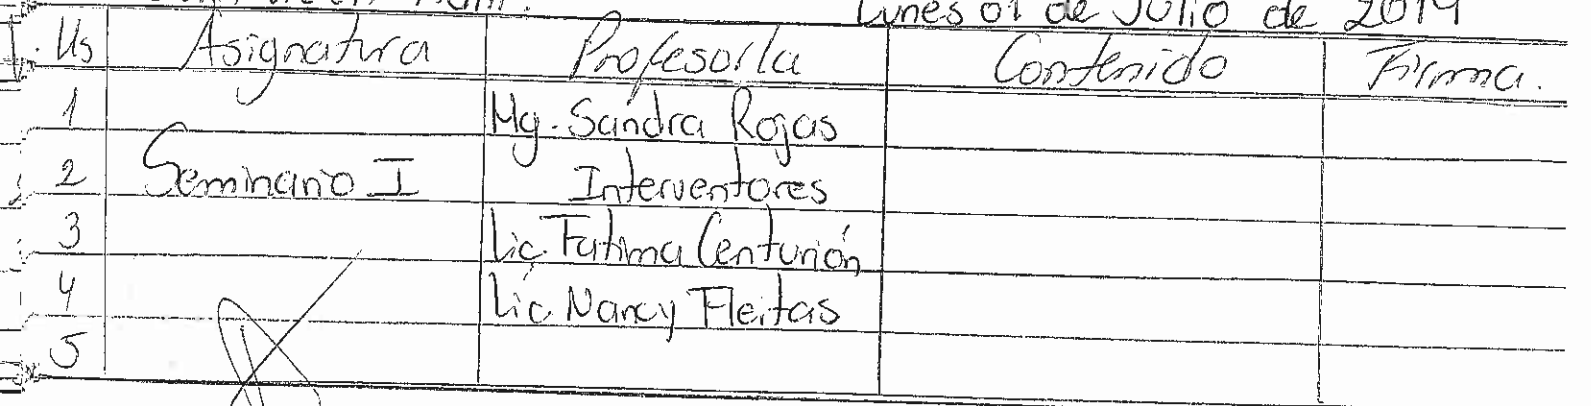 Lunes 01 de Julio de 2019
Us Asignatura Profesor/a Contenido Firma.
1 Mg. Sandra Rojas
2 Seminario I Interventores
3 Lic. Fatima Centurión
4 Lic. Nancy Fleitas
5